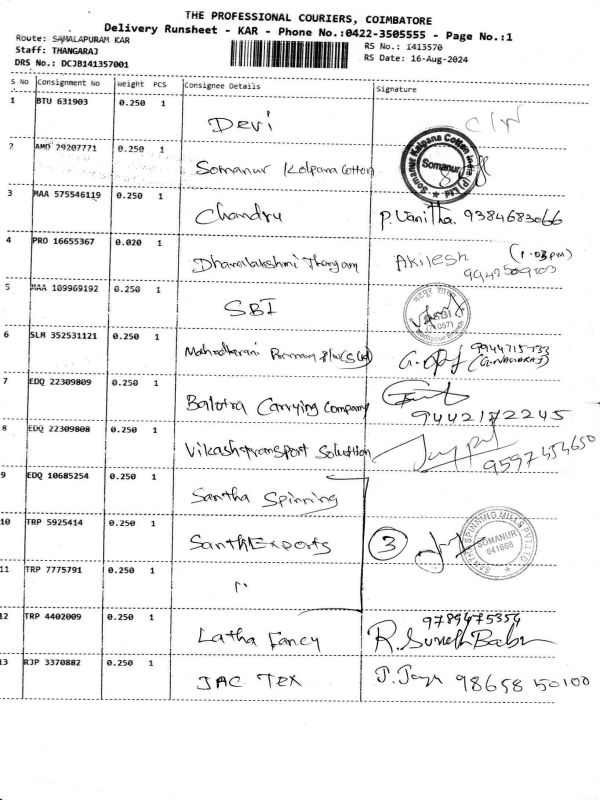 THE PROFESSIONAL COURIERS, COIMBATORE
Delivery Runsheet - KAR - Phone No.:0422-3505555 - Page No.:1
Route: SAMALAPURAM KAR
RS No.: 1413570
Staff: THANGARAJ
RS Date: 16-Aug-2024
DRS No.: DCJB141357001
S No Consignment No Weight PCS Consignee Details Signature
1 BTU 631903 0.250 1 Devi
2 AMD 29207771 0.250 1 Somanur Kalpana Cotton
Somanur Kalpana Cotton India (P) Ltd
Somanur
3 MAA 575546119 0.250 1 Chandru P. Vanitha. 9384683066
4 PRO 16655367 0.020 1 Dhanalakshmi Thangam Akilesh (1.03pm)
5 MAA 109969192 0.250 1 SBI
6 SLM 352531121 0.250 1
9944715733
7 EDQ 22309809 0.250 1 Balotra Carrying Company
9442172245
8 EDQ 22309808 0.250 1 Vikashtransport Solution
9597454650
9 EDQ 10685254 0.250 1 Santha Spinning
10 TRP 5925414 0.250 1 SanthExports 3
SPINNING MILLS PVT LTD
SOMANUR
641668
11 TRP 7775791 0.250 1 "
12 TRP 4402009 0.250 1 Latha Fancy 9789475354
R. Suresh Babu
13 RJP 3370882 0.250 1 JAC TEX J. Jaya 98658 50100